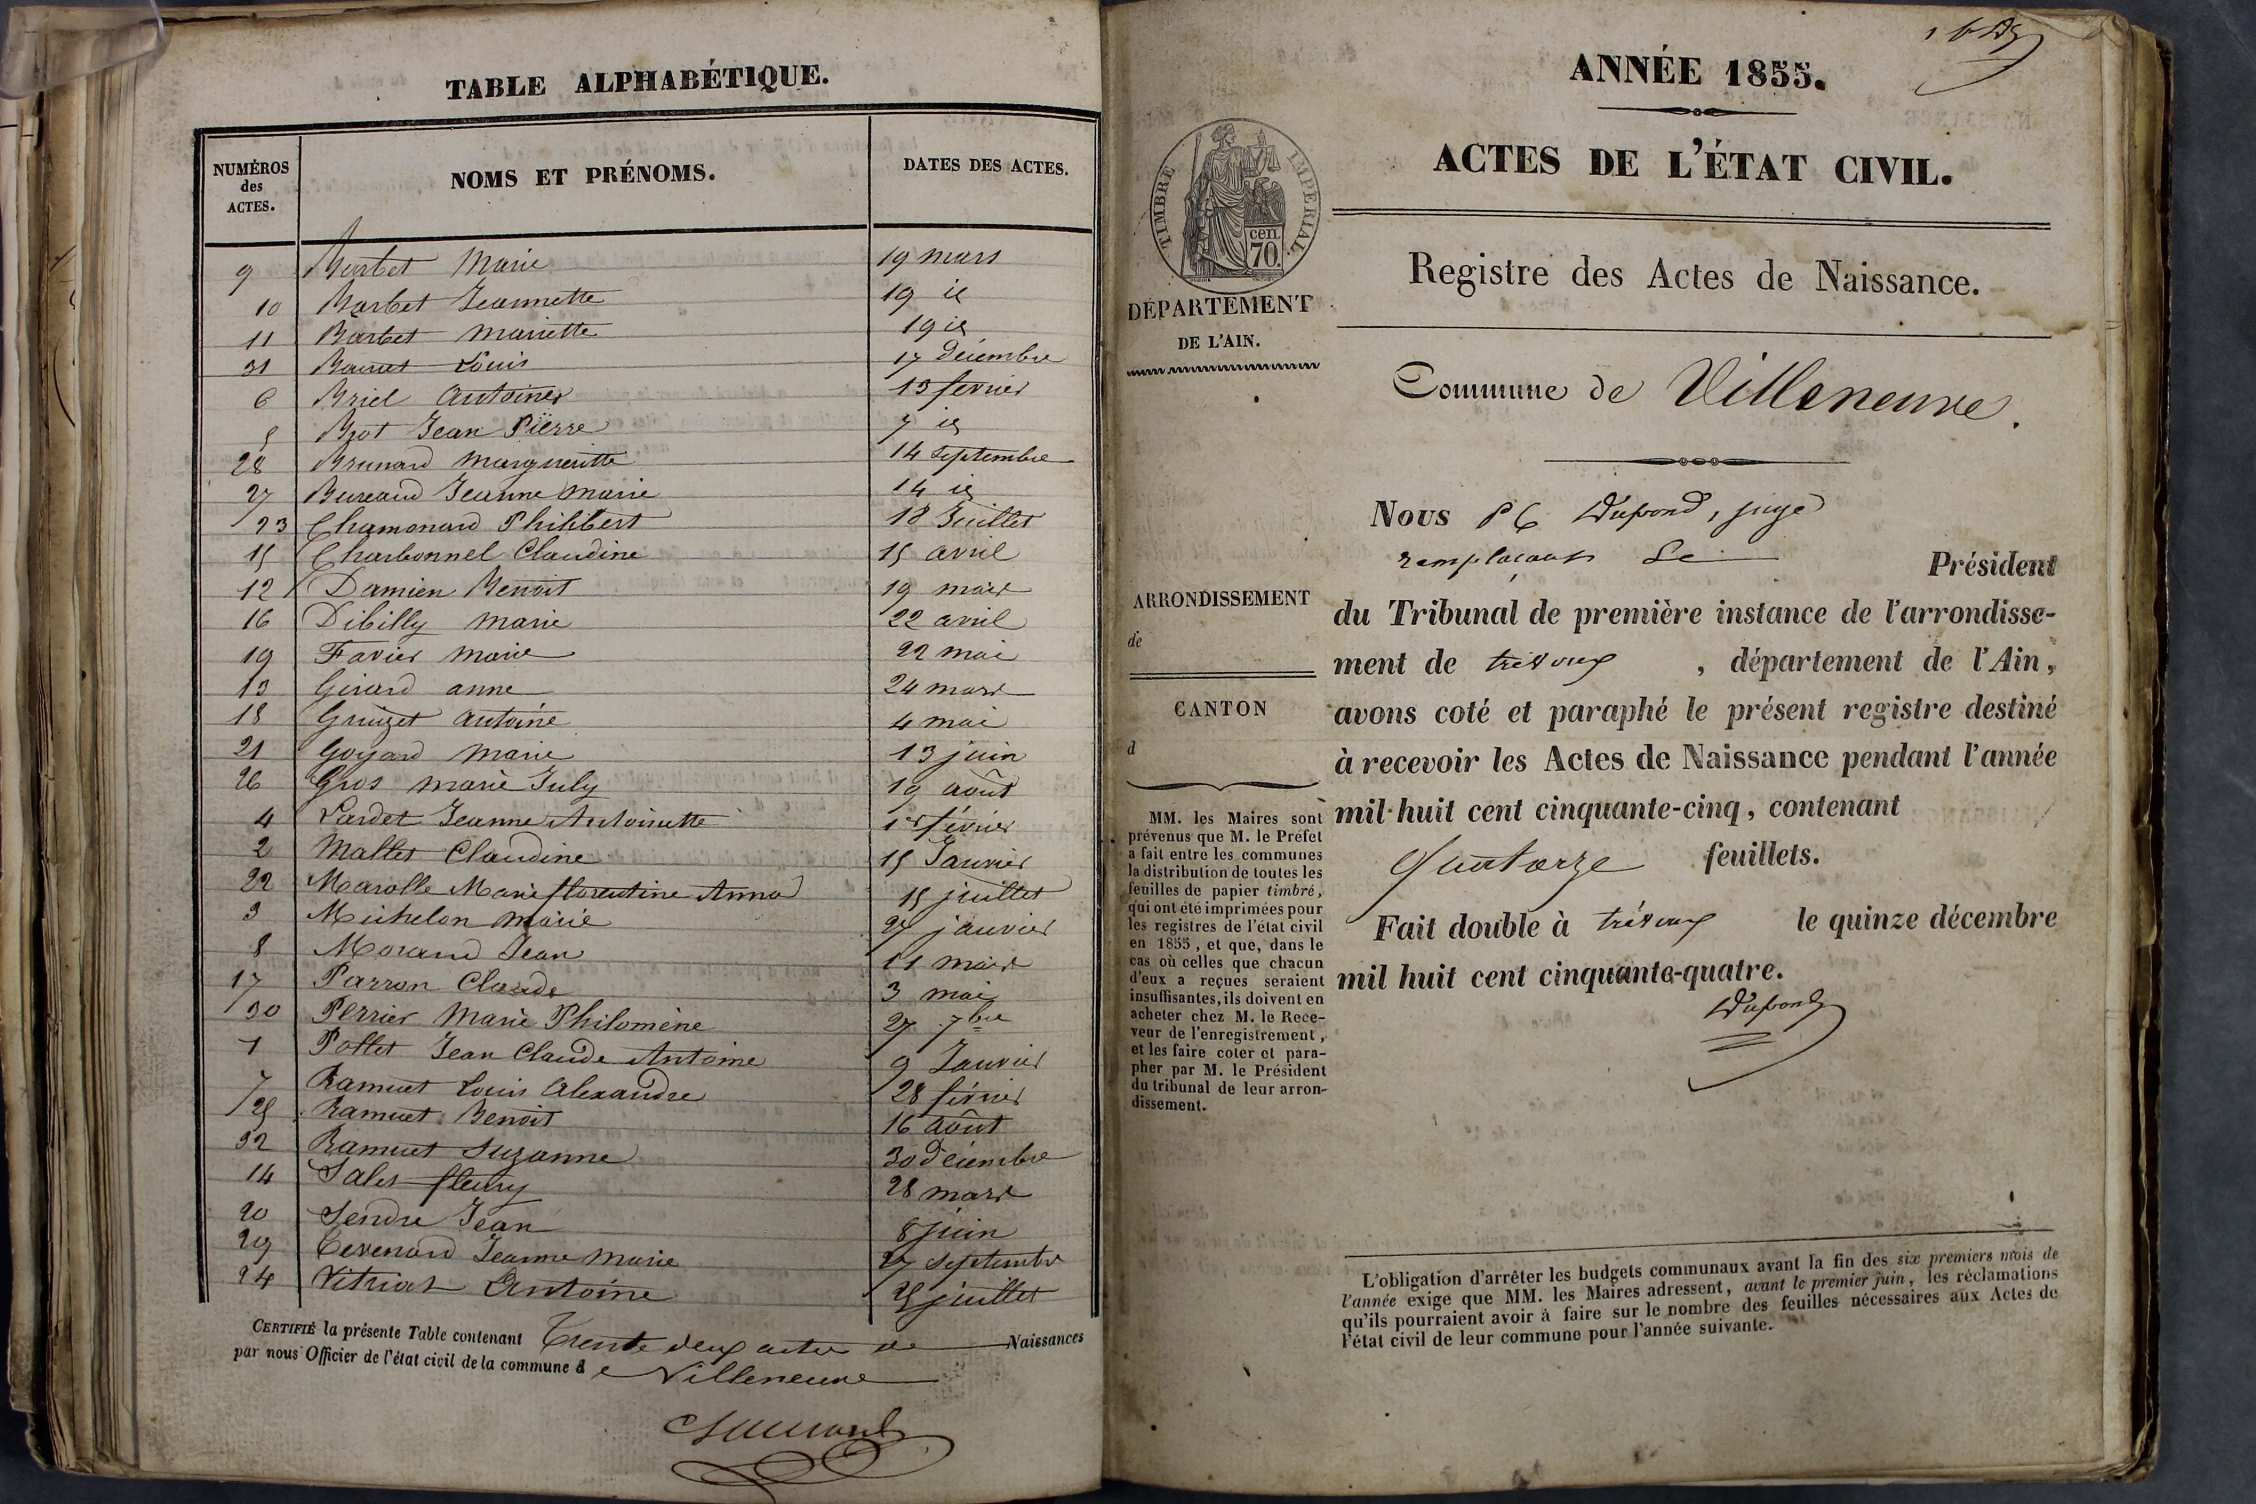 TABLE ALPHABÉTIQUE.
NUMÉROS des ACTES. NOMS ET PRÉNOMS. DATES DES ACTES.
9 Barbet Marie 19 mars
10 Barbet Jeannette 19 id
11 Barbet Mariette 19 id
31 Louis 17 Décembre
6 Briel Antoine 13 fevrier
5 Brot Jean Pierre 7 id
28 Brunard Margueritte 14 Septembre
27 Bureaud Jeanne Marie 14 id
23 Chamonard Philibert 18 Juillet
15 Charbonnel Claudine 15 avril
12 Damien Benoit 19 mars
16 Dibilly Marie 22 avril
19 Favier Marie 22 mai
13 Girard anne 24 mars
18 antoine 4 mai
21 Goyard Marie 13 juin
26 Gros Marie July 19 août
4 Lardet Jeanne Antoinette 1er février
2 Mallet Claudine 15 Janvier
22 Marolle Marie florentine Anna 15 juillet
3 Michelon Marie 27 janvier
8 Morand Jean 11 mars
17 Parron Claude 3 mai
30 Perrier Marie Philomène 27 7bre
1 Pollet Jean Claude Antoine 9 Janvier
7 Ramuet Louis Alexandre 28 février
25 Ramuet Benoit 16 août
32 Ramuet Suzanne 30 Décembre
14 Sales fleury 28 mars
20 Sendre Jean 8 juin
29 Tevenard Jeanne Marie 27 Septembre
24 Vitriat Antoine 25 juillet
CERTIFIÉ la présente Table contenant Trente deux actes de Naissances
par nous Officier de l'état civil de la commune de Villeneuve
ANNÉE 1855.
ACTES DE L'ÉTAT CIVIL.
TIMBRE IMPÉRIAL.
cen.
70.
DÉPARTEMENT
DE L'AIN.
Registre des Actes de Naissance.
Commune de Villeneuve.
Nous Dupond, juge
remplaçant le Président
du Tribunal de première instance de l'arrondisse-
ment de trévoux, département de l'Ain,
avons coté et paraphé le présent registre destiné
à recevoir les Actes de Naissance pendant l'année
mil huit cent cinquante-cinq, contenant
Quatorze feuillets.
Fait double à trévoux le quinze décembre
mil huit cent cinquante-quatre.
Dupond
ARRONDISSEMENT
de
CANTON
d
MM. les Maires sont
prévenus que M. le Préfet
a fait entre les communes
la distribution de toutes les
feuilles de papier timbré,
qui ont été imprimées pour
les registres de l'état civil
en 1855, et que, dans le
cas où celles que chacun
d'eux a reçues seraient
insuffisantes, ils doivent en
acheter chez M. le Rece-
veur de l'enregistrement,
et les faire coter et para-
pher par M. le Président
du tribunal de leur arron-
dissement.
L'obligation d'arrêter les budgets communaux avant la fin des six premiers mois de
l'année exige que MM. les Maires adressent, avant le premier juin, les réclamations
qu'ils pourraient avoir à faire sur le nombre des feuilles nécessaires aux Actes de
l'état civil de leur commune pour l'année suivante.